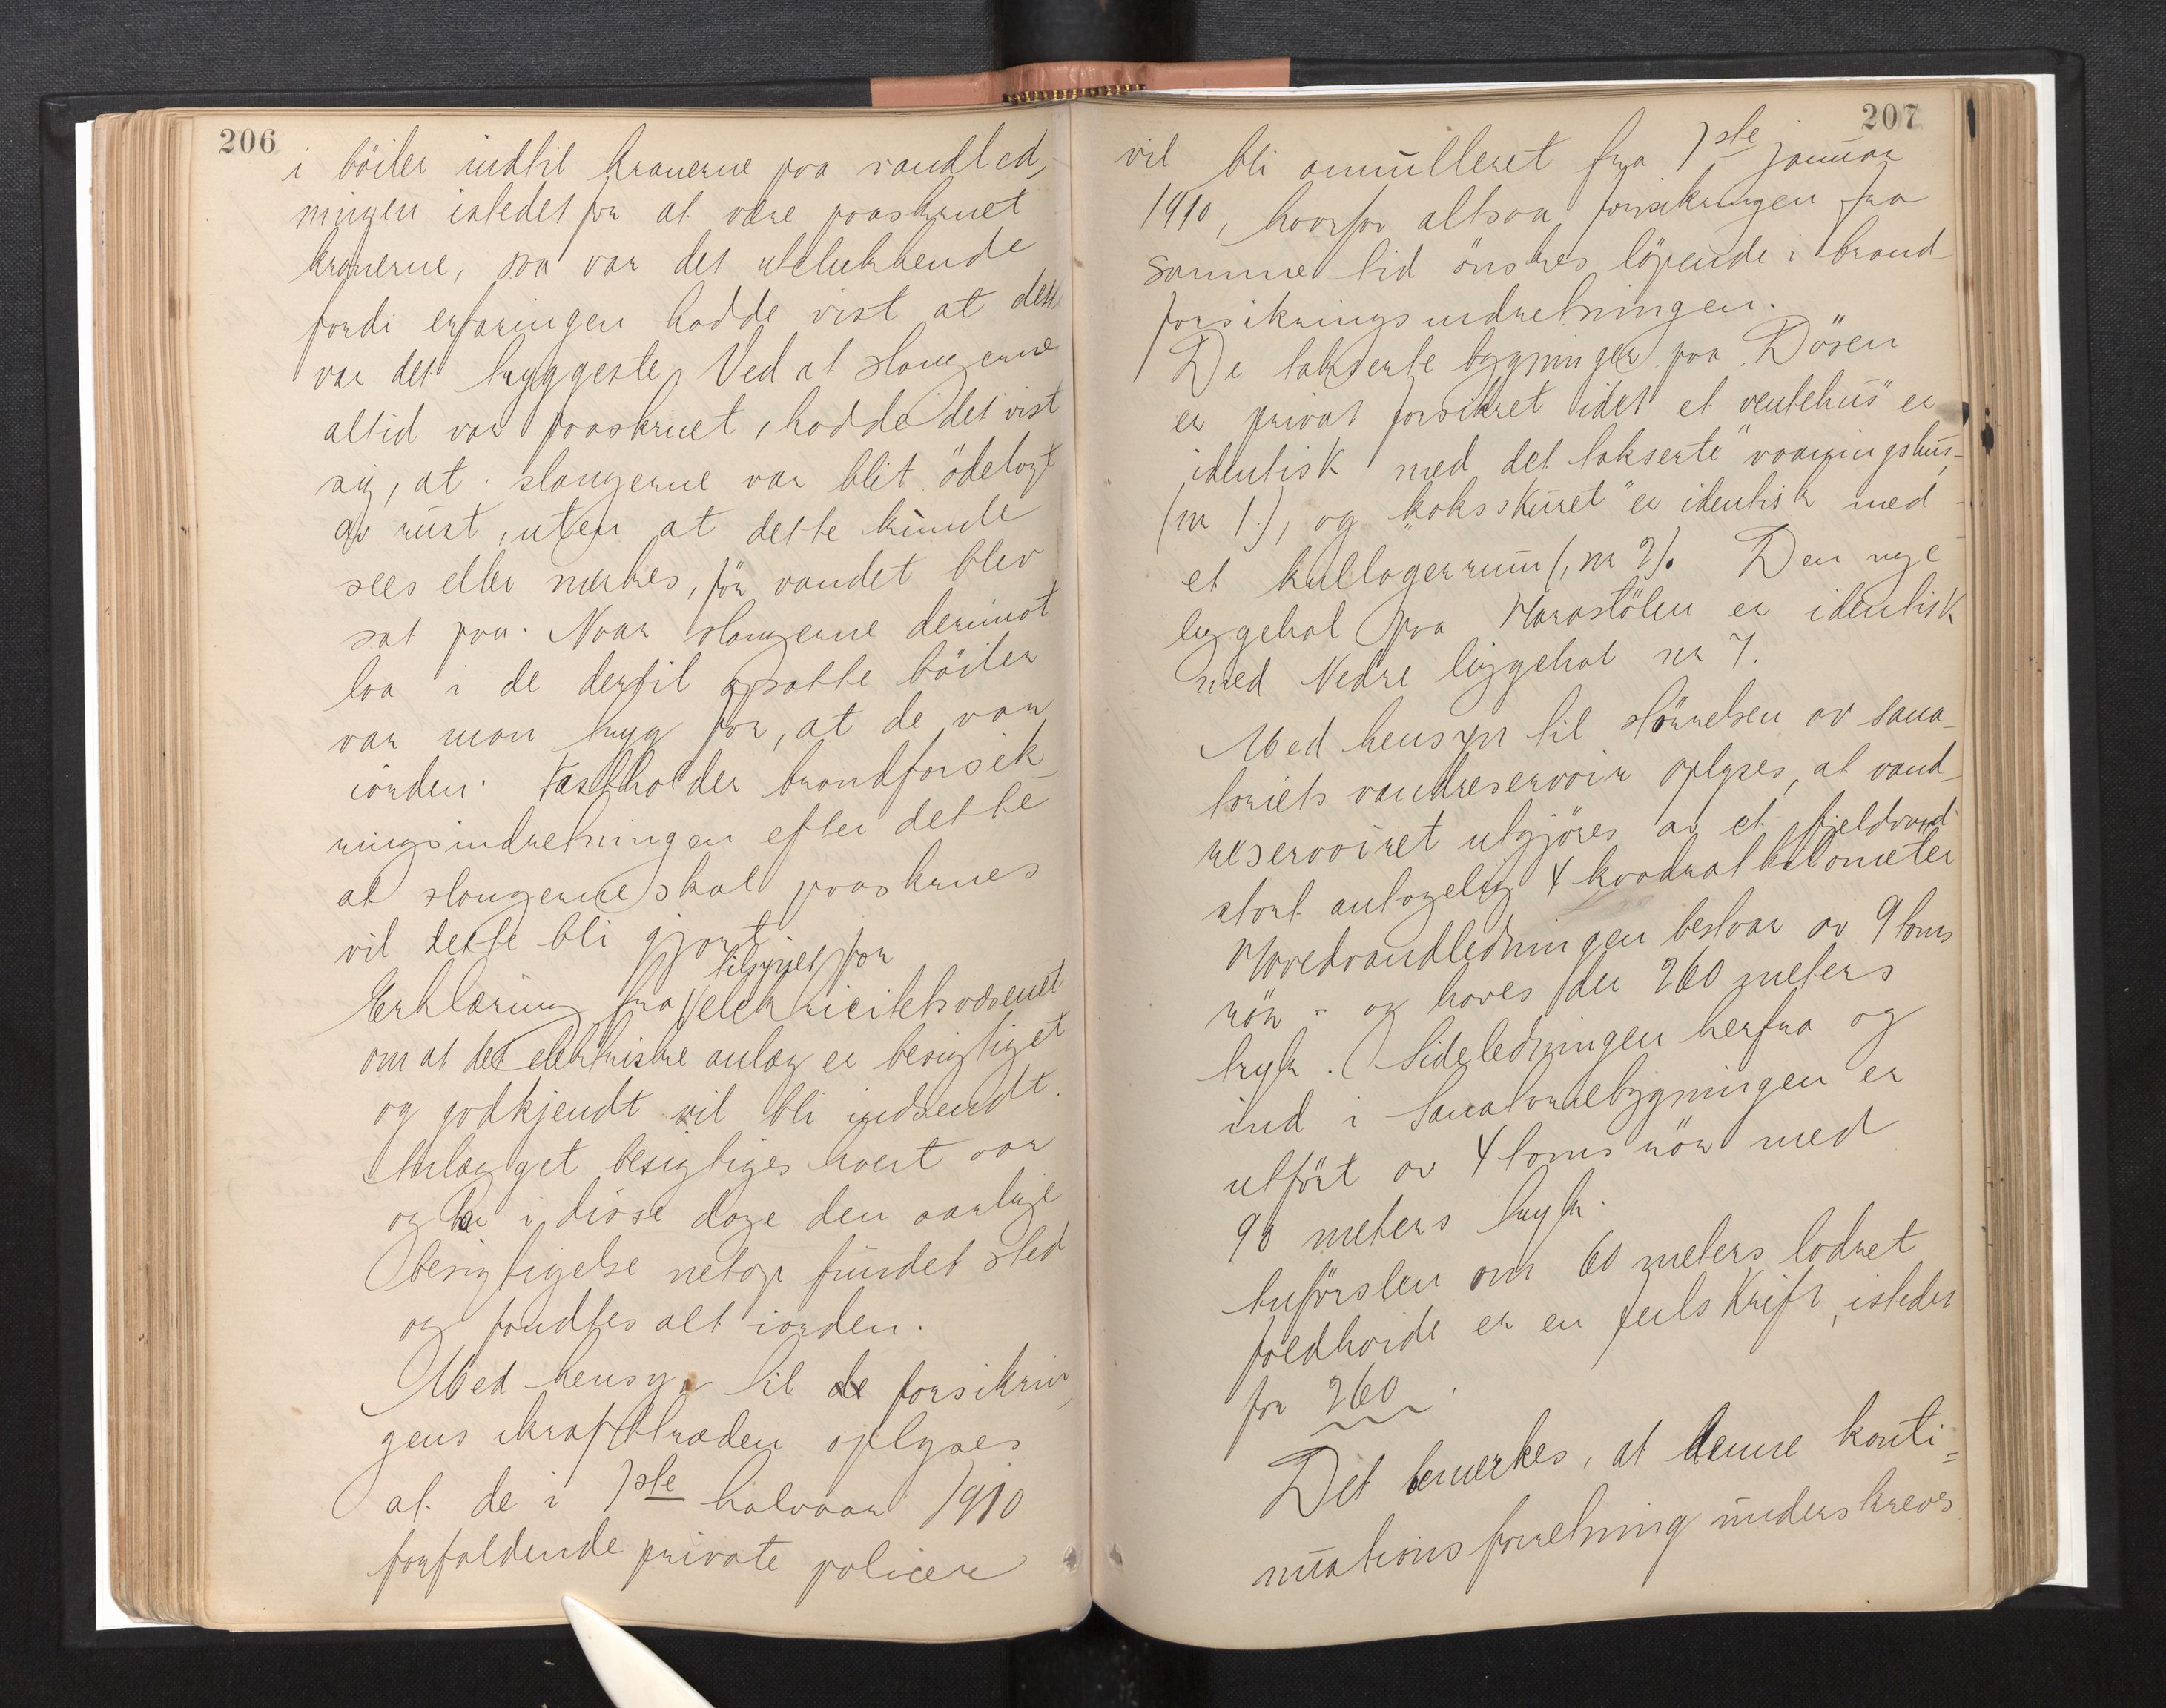 206
i böiler indtil kranerne paa vandled-
ningen istedetfor at være paaskruet
kranerne, saa var det utelukkende
fordi erfaringen hadde vist at dette
var det tryggeste. Ved at slangerne
altid var paaskruet, hadde det vist
sig, at slangerne var blit ödelagt
av rust, uten at dette kunde
sees eller merkes, før vandet blev
sat paa. Naar slangerne derimot
laa i de dertil opsatte böiler
var man tryg for, at de var
iorden. Fastholder brandforsik-
ringsindretningen efter dette
at slangerne skal paaskrues
vil dette bli gjort
tilsynet for
Erklæring fra elektricitetsvæsenet
om at det elektriske anlæg er besigtiget
og godkjendt vil bli indsendt.
Anlægget besigtiges hvert aar
og har i disse dage den aarlige
besigtigelse netop fundet sted
og fandtes alt iorden.
Med hensyn til de forsikrin-
gens ikrafttræden oplyses
at de i 1ste halvaar 1910
forfaldende private policer
207
vil bli annulleret fra 1ste januar
1910, hvorfor altsaa forsikringen fra
samme tid önskes löpende i brand-
forsikringsindretningen.
De takserte bygninger paa Dösen
er privat forsikret idet et "ventehus" er
identisk med det takserte "vaaningshus"
(nr 1.), og "koksskuret" er identisk med
et kullagerrum (nr 2). Den nye
liggehal paa Harastölen er identisk
med Nedre liggehal nr 7.
Med hensyn til störrelsen av sana-
toriets vandreservoir oplyses, at vand-
reservoiret utgjöres av et fjeldvand
stort antagelig 4 kvadratkilometer
Hovedvandledningen bestaar av 9 toms
rör - og haves der 260 meters
tryk. Sideledningen herfra og
ind i Sanatoriebygningen er
utfört av 4 toms rör med
90 meters tryk.
Anförslen om 60 meters lodret
faldhöide er en feilskrift, istedet
for 260.
Det bemerkes, at denne konti-
nuationsforretning underskreves